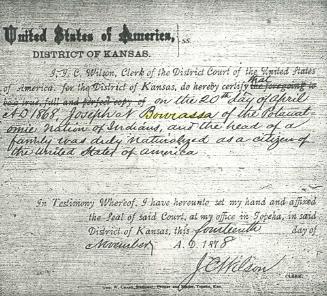 United States of America, } ss.
DISTRICT OF KANSAS.
I, J. C. Wilson, Clerk of the District Court of the United States
of America, for the District of Kansas, do hereby certify that the foregoing to
be a true, full and perfect copy of on the 20th day of April
A D 1868, Joseph N Bourassa of the Potawat-
omie Nation of Indians, and the head of a
family was duly naturalized as a citizen of
the United States of America
In Testimony Whereof, I have hereunto set my hand and affixed
the Seal of said Court, at my office in Topeka, in said
District of Kansas, this fourteenth day of
November A. D. 1878
J C Wilson
CLERK.